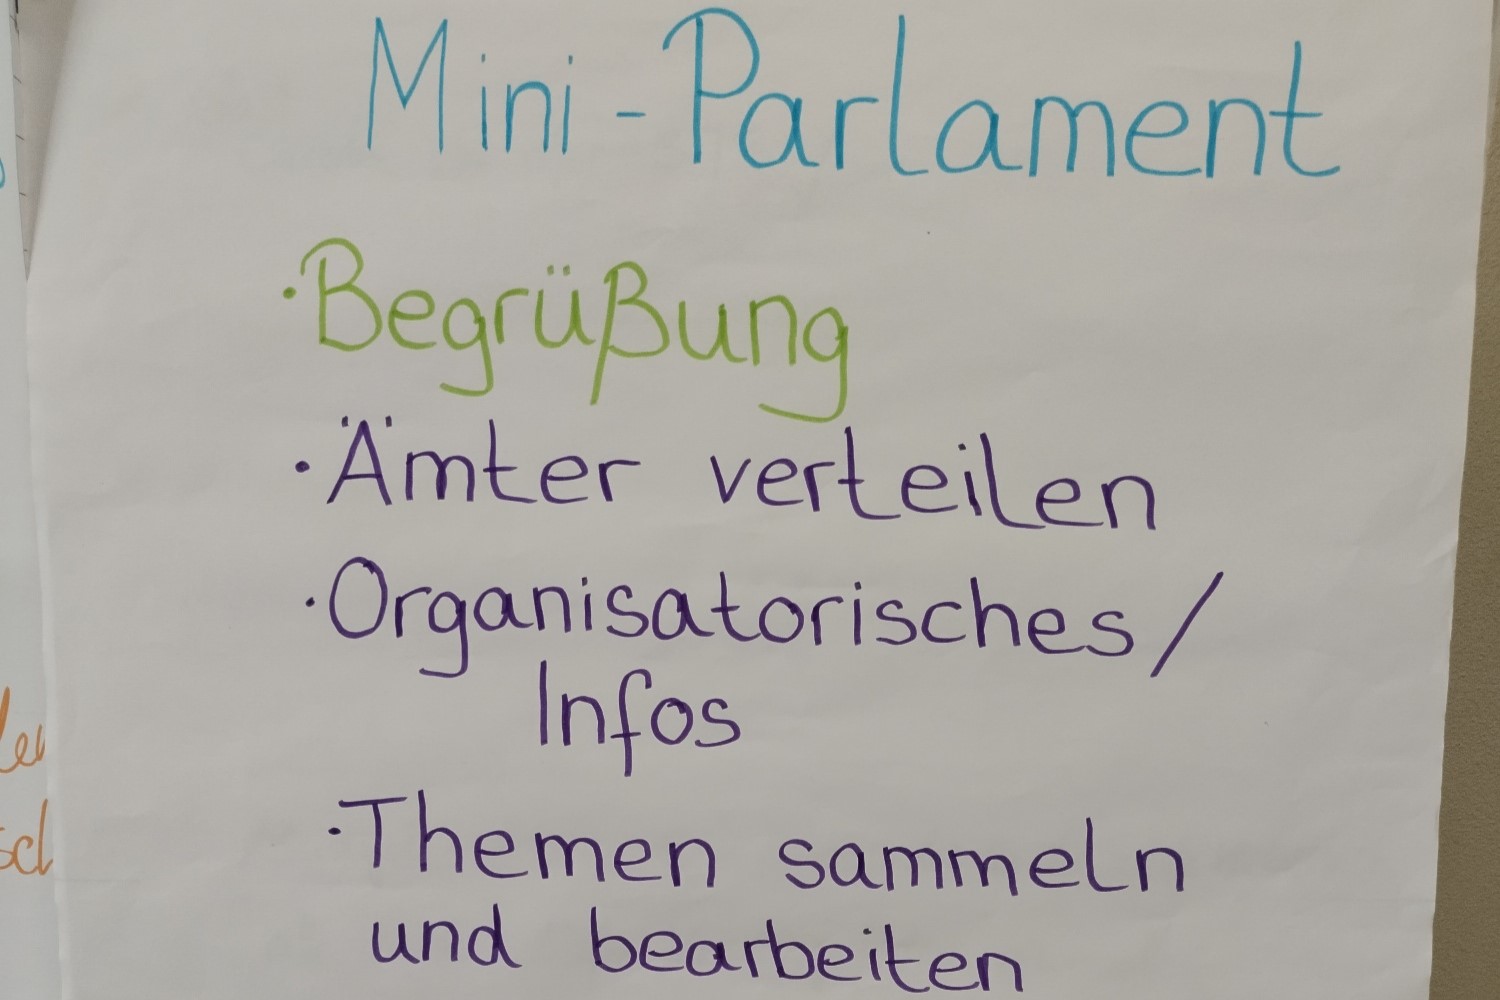 Mini-Parlament
· Begrüßung
· Ämter verteilen
· Organisatorisches/
Infos
· Themen sammeln
und bearbeiten